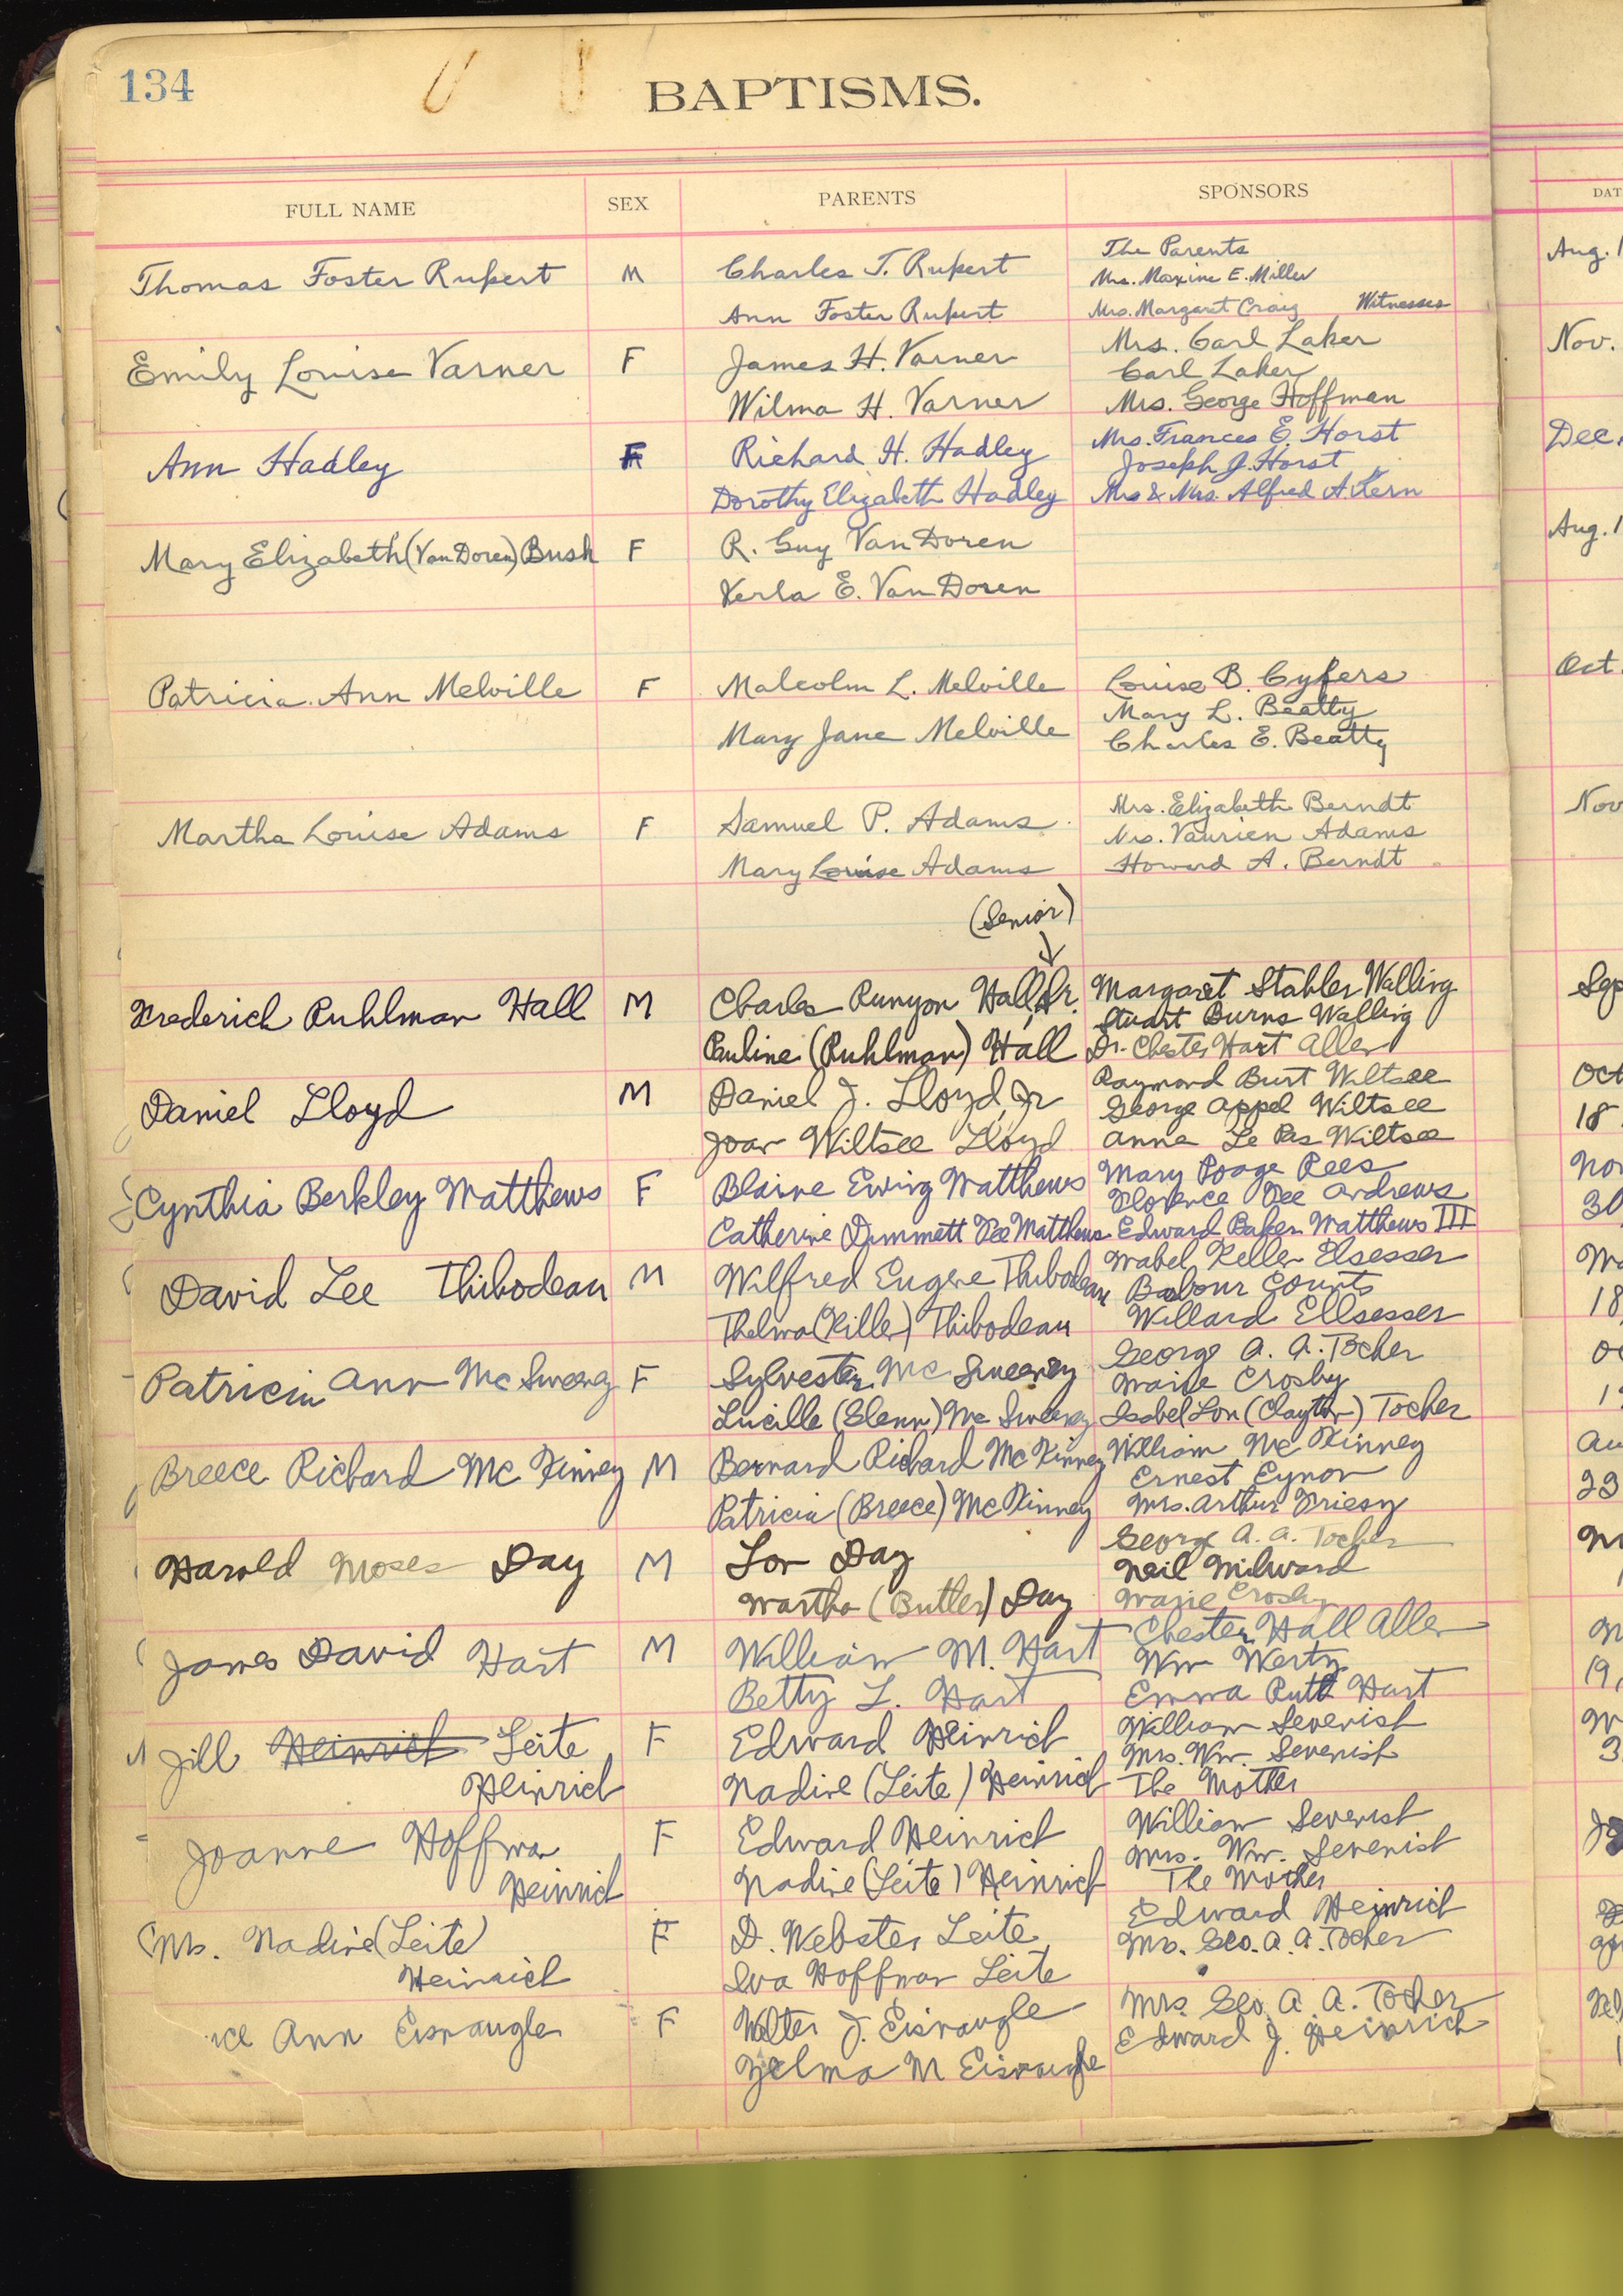 134
BAPTISMS.
FULL NAME SEX PARENTS SPONSORS DAT
The Parents
Thomas Foster Rupert M Charles T. Rupert Mrs. Maxine E. Miller Aug. 1
Ann Foster Rupert Mrs. Margaret Craig Witnesses
Mrs. Carl Laker
Emily Louise Varner F James H. Varner Carl Laker Nov.
Wilma H. Varner Mrs. George Hoffman
Mrs. Frances E. Horst
Ann Hadley F Richard H. Hadley Joseph J. Horst Dec.
Dorothy Elizabeth Hadley Mr. & Mrs. Alfred A. Kern
Mary Elizabeth (Van Doren) Bush F R. Guy Van Doren Aug. 1
Verla E. Van Doren
Patricia Ann Melville F Malcolm L. Melville Louise B. Cyfers Oct.
Mary L. Beatty
Mary Jane Melville Charles E. Beatty
Mrs. Elizabeth Berndt Nov
Martha Louise Adams F Samuel P. Adams Mrs. Vaurien Adams
Mary Louise Adams Howard A. Berndt
(Senior)
Frederich Ruhlman Hall M Charles Runyon Hall, Sr. Margaret Stahler Walling Sep
Stuart Burns Walling
Pauline (Ruhlman) Hall Dr. Chester Hart Aller
Raymond Burt Wiltsee Oct
Daniel Lloyd M Daniel J. Lloyd, Jr George Appel Wiltsee 18
Joan Wiltsee Lloyd Anna Le Wiltsee
Mary Poage Rees Nov
Cynthia Berkley Matthews F Blaine Ewing Matthews Florence Fee Andrews 30
Catherine Dummett Fee Matthews Edward Baker Matthews III
Mabel Keller Elsesser Ma
David Lee Thibodeau M Wilfred Eugene Thibodeau Barbour Counts 18
Thelma (Killer) Thibodeau Willard Ellsesser
George A. A. Tocher Oc
Patricia Ann McSweeney F Sylvester McSweeney Marie Crosby 1
Lucille (Glenn) McSweeney Isabel Lou (Clayton) Tocher
William McKinney Au
Breece Richard McKinney M Bernard Richard McKinney Ernest Eynon 23
Patricia (Breece) McKinney Mrs. Arthur Friesz
George A. A. Tocher
Harold Moses Day M Lon Day Neil Milward
Martha (Butler) Day Marie Crosby
Chester Hall Aller
James David Hart M William M. Hart Wm Werty 19,
Betty L. Hart Emma Rutt Hart
William Severish
Jill Heinrich Leite F Edward Heinrich Mrs. Wm. Severish 3
Heinrich Nadine (Leite) Heinrich The Mother
William Severish
Joanne Hoffman F Edward Heinrich Mrs. Wm. Severish
Heinrich Nadine (Leite) Heinrich The Mother
Edward Heinrich
Mrs. Nadine (Leite) F D. Webster Leite Mrs. Geo. A. A. Tocher
Heinrich Eva Hoffman Leite
Mrs. Geo. A. A. Tocher
Ann Eisnaugle F Walter J. Eisnaugle Edward J. Heinrich
Zelma M Eisnaugle